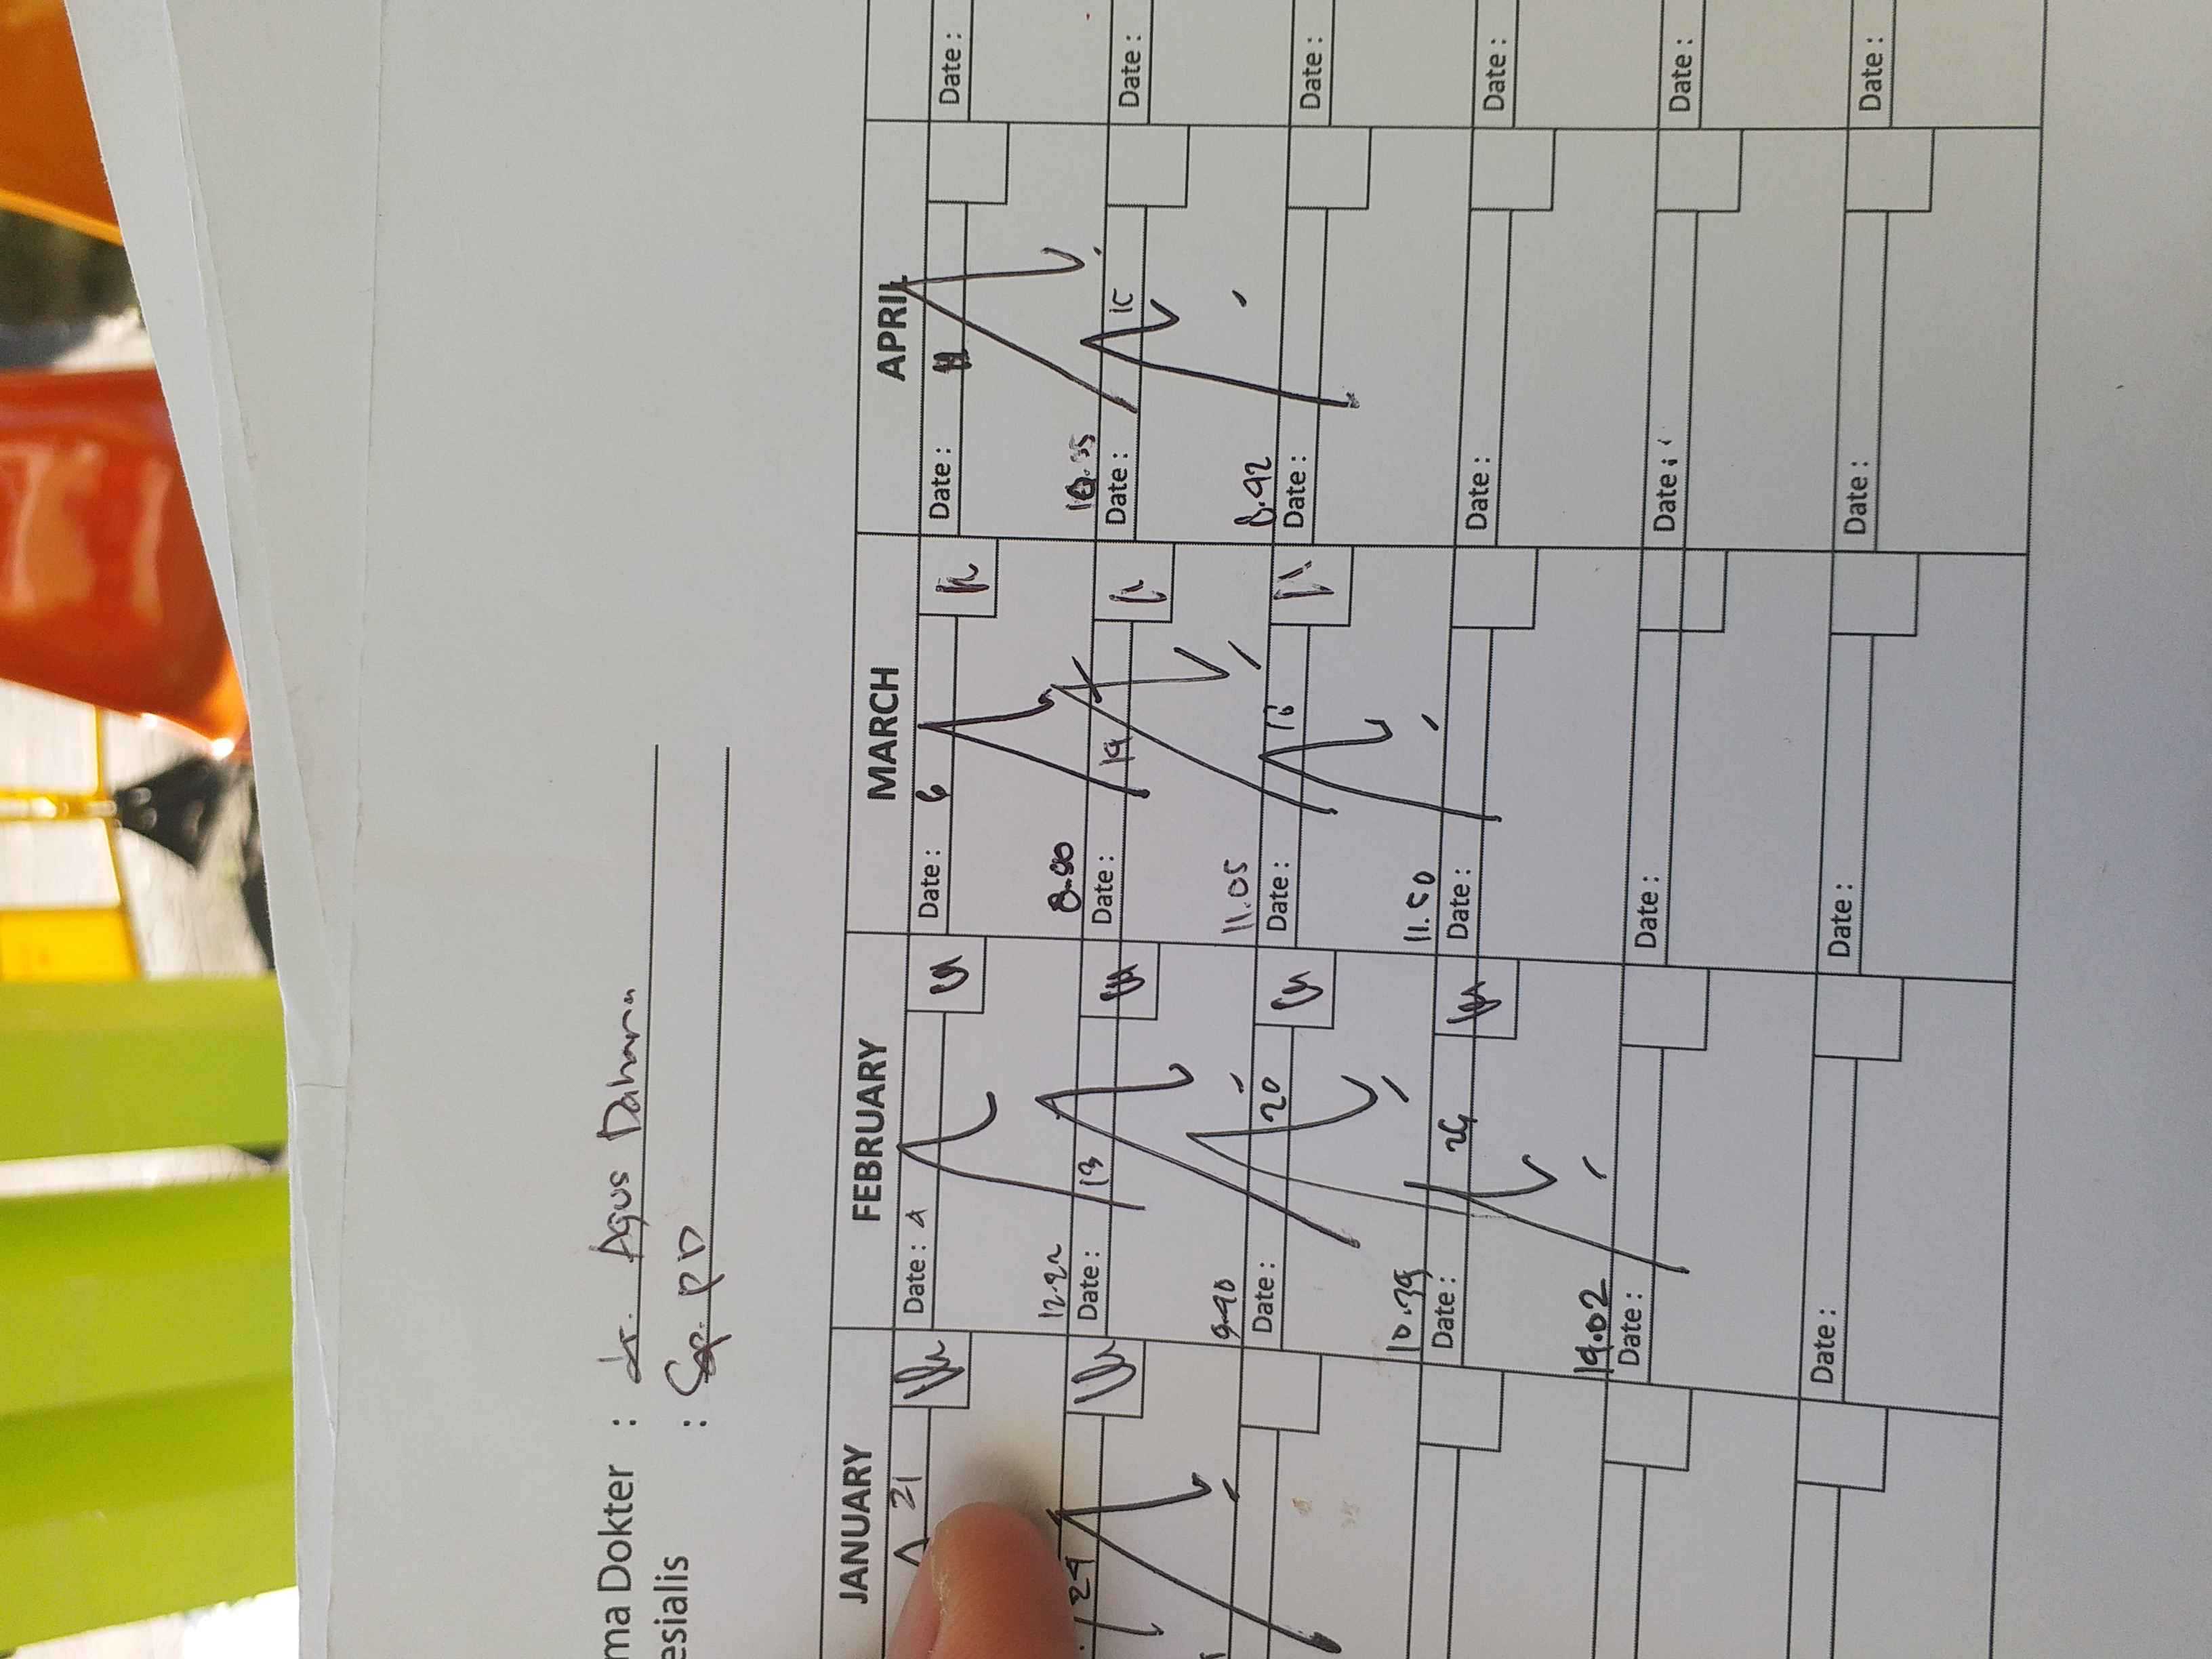 ma Dokter : dr. Agus Dahana
esialis : Sp. PD
JANUARY FEBRUARY MARCH APRIL
21 Date: 4 Date: 6 Date: Date:
12.42 8.00
24 Date: 13 Date: 14 Date: 15 Date:
9.40 11.05 8.42
Date: 20 Date: 16 Date: Date:
10.39 11.50
Date: 24 Date: Date: Date:
19.02
Date: Date: Date: Date:
Date: Date: Date: Date: